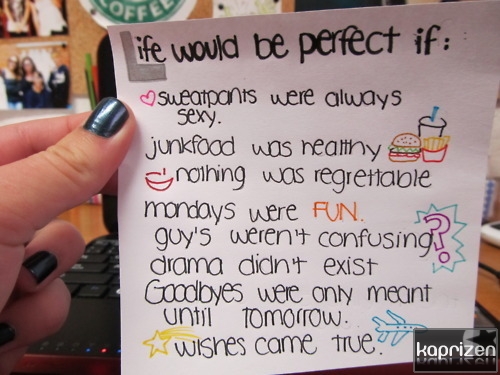 COFFEE
Life would be perfect if:
sweatpants were always
sexy.
junkfood was healthy
nothing was regrettable
mondays were FUN.
guy's weren't confusing
?
drama didn't exist
Goodbyes were only meant
until tomorrow.
wishes came true.
kaprizen